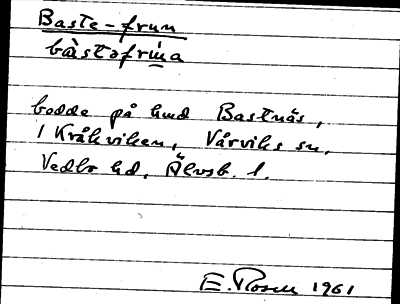 Baste-frun
bàstəfrṳ́a
bodde på hmd Bastnäs,
i Kråkviken, Vårviks sn,
Vedbo hd, Älvsb. l.
E. Rosen 1961